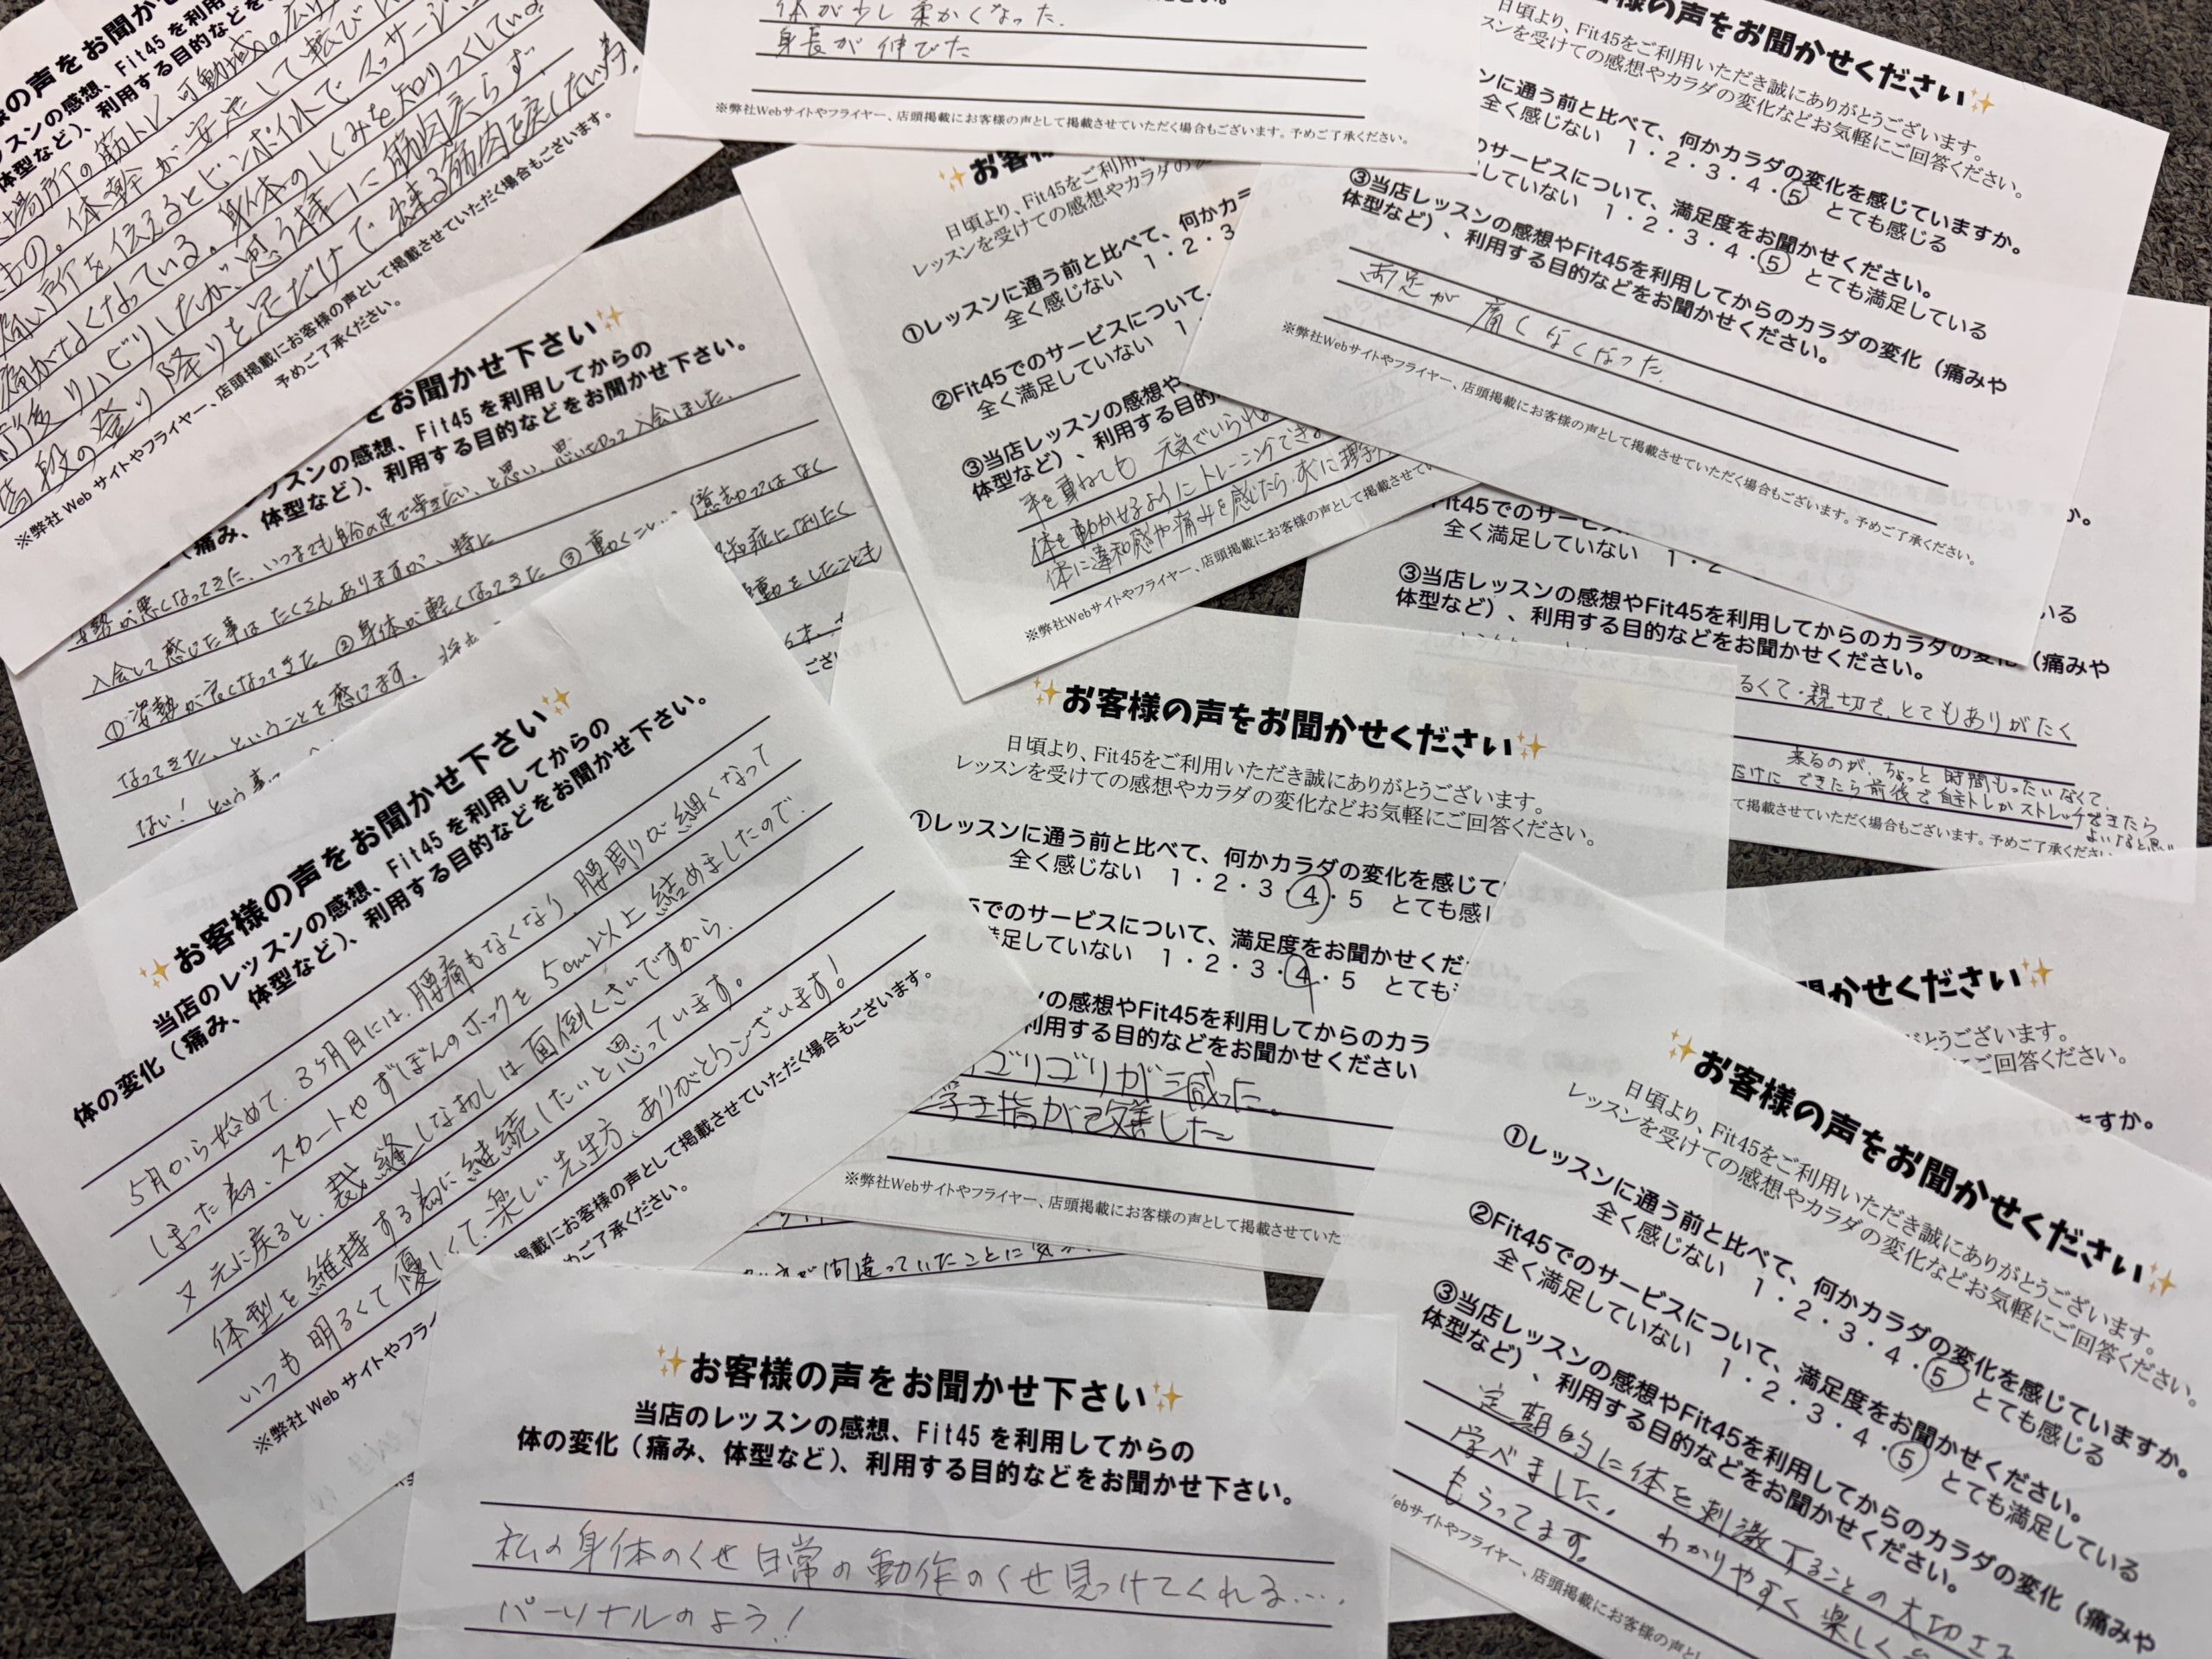 の声をお聞か
ッスンの感想、Fit45 を利用
体型など）、利用する目的などを
場所の筋トレ、可動域の広
もの。体幹が安定して転び
痛い所を伝えるとピンポイントでマッサージ
痛がなくなっている。身体のしくみを知りつくしている
術後リハビリしたが思う様に筋肉戻らず、
階段の登り降りを足だけで出来る筋肉を戻したい為。
※弊社 Web サイトやフライヤー、店頭掲載にお客様の声として掲載させていただく場合もございます。
予めご了承ください。
体が少し柔かくなった.
身長が伸びた
※弊社Webサイトやフライヤー、店頭掲載にお客様の声として掲載させていただく場合もございます。予めご了承ください。
様の声をお聞かせください
日頃より、Fit45をご利用いただき誠にありがとうございます。
スンを受けての感想やカラダの変化などお気軽にご回答ください。
ンに通う前と比べて、何かカラダの変化を感じていますか。
全く感じない　1・2・3・4・5　とても感じる
のサービスについて、満足度をお聞かせください。
していない　1・2・3・4・5　とても満足している
③当店レッスンの感想やFit45を利用してからのカラダの変化（痛みや
体型など）、利用する目的などをお聞かせください。
両足が 痛くなくなった.
※弊社Webサイトやフライヤー、店頭掲載にお客様の声として掲載させていただく場合もございます。予めご了承ください。
お客
日頃より、Fit45をご利用
レッスンを受けての感想やカラダの
①レッスンに通う前と比べて、何かカ
全く感じない　1・2・3
②Fit45でのサービスについて、
全く満足していない　1
③当店レッスンの感想や
体型など）、利用する目的
年を重ねても 元気でいられ
体を動かせるようにトレーニングでき
体に違和感や痛みを感じたら、
※弊社Webサイトやフライヤー、店頭掲載にお客様の声として掲載させてい
をお聞かせ下さい
ッスンの感想、Fit45 を利用してからの
（痛み、体型など）、利用する目的などをお聞かせ下さい。
姿勢が悪くなってきた、いつまでも自分の足で歩きたい、と思い、思い切って入会しました。
入会して感じた事はたくさんありますが、特に
①姿勢が良くなってきた ②身体が軽くなってきた ③動くこと 億劫ではなく
なってきた、ということを感じます。 認知症になりたく
ない！ という 運動をしたことも
it45でのサービ
全く満足していない　1・2
③当店レッスンの感想やFit45を利用してからのカラダの変化（痛みや
体型など）、利用する目的などをお聞かせください。
るくて・親切で、とてもありがたく
来るのが、ちょっと時間もったいなくて、
だけに できたら前後で自主トレかストレッチできたら
よいなと思い
て掲載させていただく場合もございます。予めご了承くださ
お客様の声をお聞かせください
日頃より、Fit45をご利用いただき誠にありがとうございます。
レッスンを受けての感想やカラダの変化などお気軽にご回答ください。
①レッスンに通う前と比べて、何かカラダの変化を感じて
全く感じない　1・2・3・4・5　とても感
5でのサービスについて、満足度をお聞かせくだ
足していない　1・2・3・4・5　とても
ンの感想やFit45を利用してからのカラ
利用する目的などをお聞かせください
ゴリゴリが減った。
指が改善した
※弊社Webサイトやフライヤー、店頭掲載にお客様の声として掲載させていた
間違っていたことに気が
お客様の声をお聞かせ下さい
当店のレッスンの感想、Fit45 を利用してからの
体の変化（痛み、体型など）、利用する目的などをお聞かせ下さい。
5月から始めて、3ヶ月目には、腰痛もなくなり、腰周りが細くなって
しまった為、スカートやずぼんのホックを5cm以上 縮めましたので、
又元に戻ると、裁縫しなおしは面倒くさいですから、
体型を維持する為に継続したいと思っています。
いつも明るくて優しくて、楽しい先生方、ありがとうございます！
※弊社 Web サイトやフライ
掲載にお客様の声として掲載させていただく場合もございます。
めご了承ください。
聞かせください
がとうございます。
にご回答ください。
ますか。
お客様の声をお聞かせください
日頃より、Fit45をご利用いただき誠にありがとうございます。
レッスンを受けての感想やカラダの変化などお気軽にご回答ください。
①レッスンに通う前と比べて、何かカラダの変化を感じていますか。
全く感じない　1・2・3・4・5　とても感じる
②Fit45でのサービスについて、満足度をお聞かせください。
全く満足していない　1・2・3・4・5　とても満足している
③当店レッスンの感想やFit45を利用してからのカラダの変化（痛みや
体型など）、利用する目的などをお聞かせください。
定期的に体を刺激することの大切さ
学べました。わかりやすく楽しく
もらってます。
Webサイトやフライヤー、店頭掲載にお客様の声とし
お客様の声をお聞かせ下さい
当店のレッスンの感想、Fit45 を利用してからの
体の変化（痛み、体型など）、利用する目的などをお聞かせ下さい。
私の身体のくせ 日常の動作のくせ見つけてくれる....
パーソナルのよう！